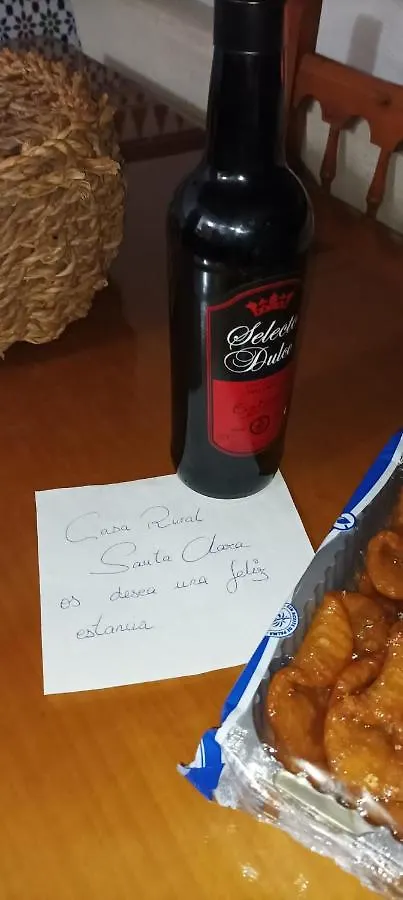 Selecto
Dulce
Casa Rural
Santa Clara
os desea una feliz
estancia